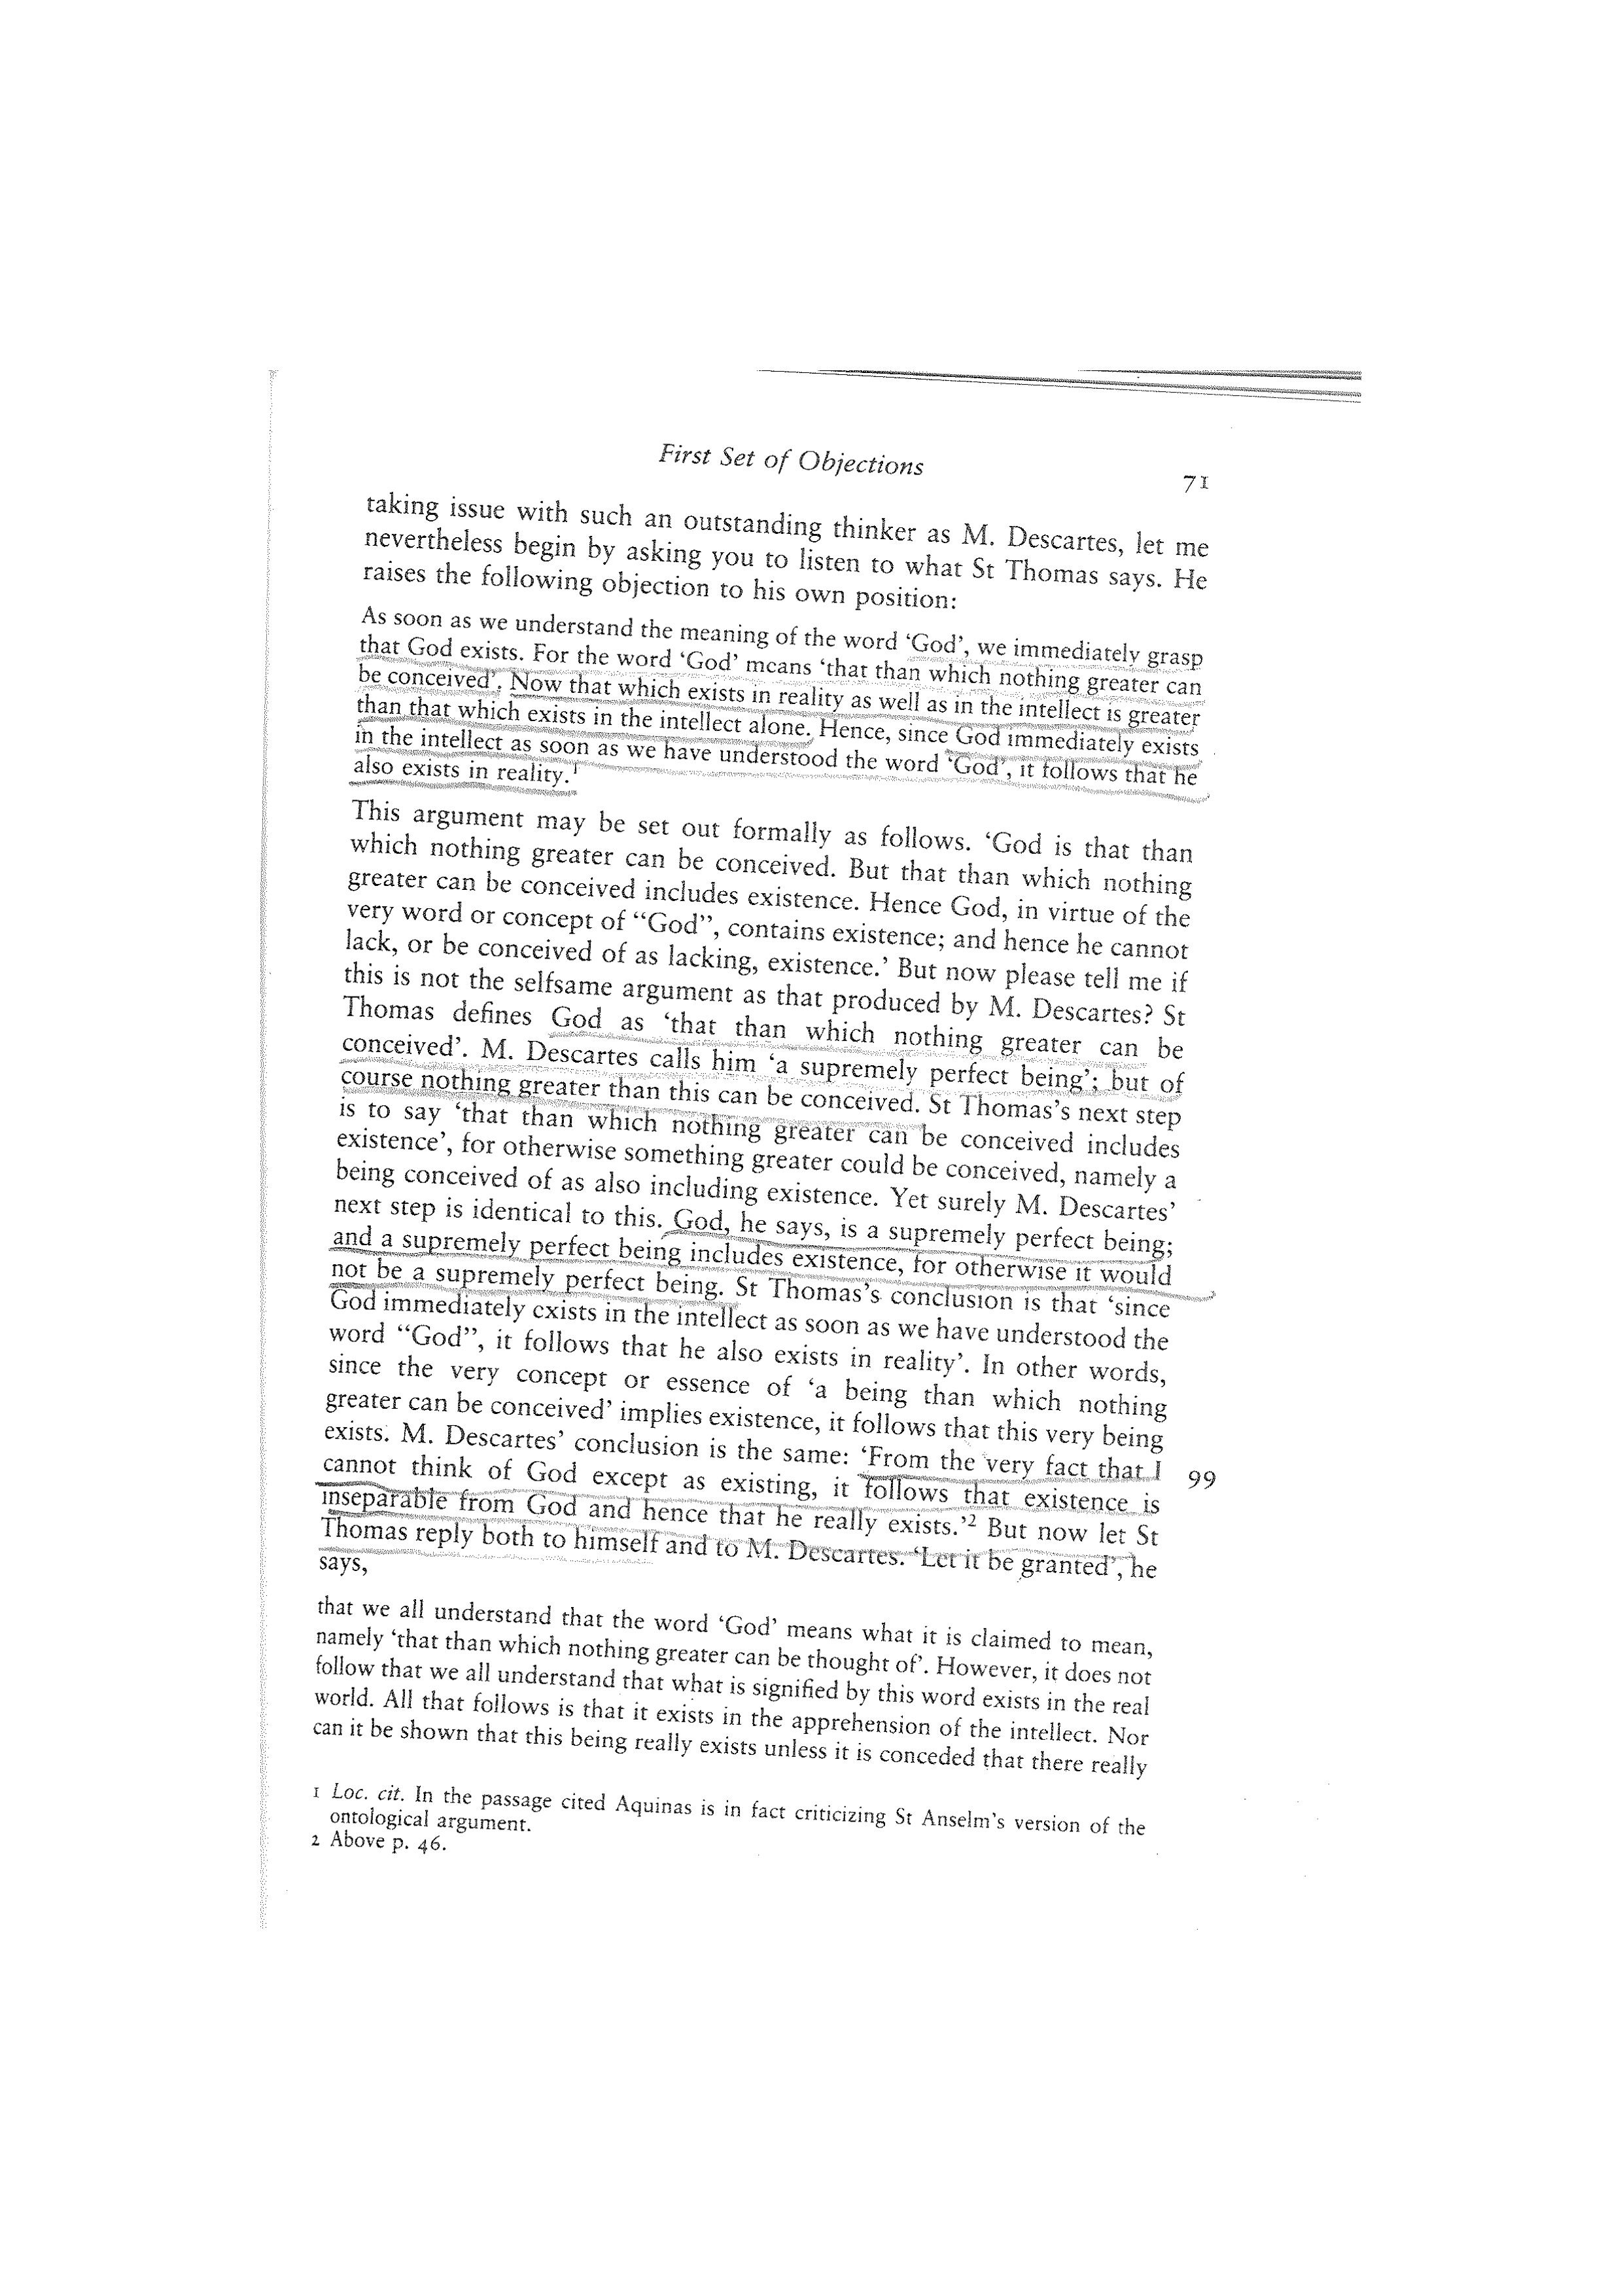 First Set of Objections
71
taking issue with such an outstanding thinker as M. Descartes, let me
nevertheless begin by asking you to listen to what St Thomas says. He
raises the following objection to his own position:
As soon as we understand the meaning of the word ‘God’, we immediately grasp
that God exists. For the word ‘God’ means ‘that than which nothing greater can
be conceived’. Now that which exists in reality as well as in the intellect is greater
than that which exists in the intellect alone. Hence, since God immediately exists
in the intellect as soon as we have understood the word ‘God’, it follows that he
also exists in reality.¹
This argument may be set out formally as follows. ‘God is that than
which nothing greater can be conceived. But that than which nothing
greater can be conceived includes existence. Hence God, in virtue of the
very word or concept of “God”, contains existence; and hence he cannot
lack, or be conceived of as lacking, existence.’ But now please tell me if
this is not the selfsame argument as that produced by M. Descartes? St
Thomas defines God as ‘that than which nothing greater can be
conceived’. M. Descartes calls him ‘a supremely perfect being’; but of
course nothing greater than this can be conceived. St Thomas’s next step
is to say ‘that than which nothing greater can be conceived includes
existence’, for otherwise something greater could be conceived, namely a
being conceived of as also including existence. Yet surely M. Descartes’
next step is identical to this. God, he says, is a supremely perfect being;
and a supremely perfect being includes existence, for otherwise it would
not be a supremely perfect being. St Thomas’s conclusion is that ‘since
God immediately exists in the intellect as soon as we have understood the
word “God”, it follows that he also exists in reality’. In other words,
since the very concept or essence of ‘a being than which nothing
greater can be conceived’ implies existence, it follows that this very being
exists. M. Descartes’ conclusion is the same: ‘From the very fact that I 99
cannot think of God except as existing, it follows that existence is
inseparable from God and hence that he really exists.’² But now let St
Thomas reply both to himself and to M. Descartes. ‘Let it be granted’, he
says,
that we all understand that the word ‘God’ means what it is claimed to mean,
namely ‘that than which nothing greater can be thought of’. However, it does not
follow that we all understand that what is signified by this word exists in the real
world. All that follows is that it exists in the apprehension of the intellect. Nor
can it be shown that this being really exists unless it is conceded that there really
1 Loc. cit. In the passage cited Aquinas is in fact criticizing St Anselm’s version of the
ontological argument.
2 Above p. 46.